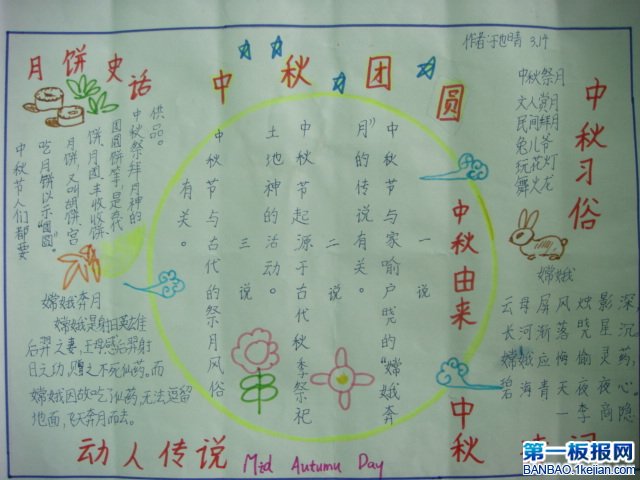 中秋团圆
作者:
月饼史话
中秋节人们都要
吃月饼以示“团圆”。
月饼又叫胡饼、宫
饼、月团、丰收饼、
团圆饼等,是古代
中秋祭拜月神的
供品。
中秋由来
一说
中秋节与家喻户晓的“嫦娥奔
月”的传说有关。
二说
中秋节起源于古代秋季祭祀
土地神的活动。
三说
中秋节与古代的祭月风俗
有关。
中秋习俗
中秋祭月
文人赏月
民间拜月
兔儿爷
玩花灯
舞火龙
嫦娥奔月
嫦娥是射日英雄
后羿之妻,王母感后羿射
日之功,赠之不死仙药。而
嫦娥因故吃了仙药,无法逗留
地面,飞天奔月而去。
动人传说
Mid Autumu Day
嫦娥
云母屏风烛影深,
长河渐落晓星沉
嫦娥应悔偷灵药,
碧海青天夜夜心。
一李商隐
中秋
第一板报网
BANBAO.1kejian.com